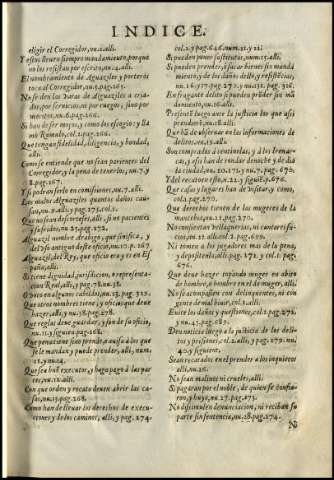 INDICE.
eligir el Corregidor, nu.2. alli.
Y estos lleuen siempre mandamiento, porque
no los resistan por escrito, nu.4. alli.
El nombramiento de Alguaziles y porteros
toca al Corregidor, nu.6. pag.265.
No se den las varas de Alguaziles a criados,
por seruicios, ni por ruegos, sino por
meritos, nu.6. pag.266.
Si han de ser moços, y como los escogio, y llamó
Romulo, col.2. pag.266.
Que tengan fidelidad, diligencia, y bondad,
alli.
Como se entiende que no sean parientes del
Corregidor, y la pena de tenerlos, nu.7. y
8. pag.267.
Y si podran serlo en comissiones, nu.7. alli.
Los malos Alguaziles quantos daños causan,
nu.9. alli, y pag.275. col.1.
Que no sean desorejados, alli, si no parientes
y fauorecidos, nu.21. pag.272.
Alguazil nombre Arabigo, que significa, y
del vso antiguo deste oficio, nu.10. p.267.
Alguazil del Rey, que oficio era y es en España,
alli.
Si tiene dignidad, jurisdicion, o representacion
Real, alli, y pag.78. nu.38.
O voto en alguno cabildo, nu.13. pag.325.
Que otros nombres tiene, y otros donde deue
hazer, alli, y nu.38. pag.278.
Que reglas deue guardar, y son de su oficio,
nu.11. y siguien. pag.268.
Que pena tiene sino prende, o acusa a los que
se le manda, y puede prender, alli, num.
11. y nu.82.
Que sea buẽ executor, y haga pago à las partes,
nu.12. alli.
Con que orden y recato deuen abrir las casas,
nu.13. pag.268.
Como han de lleuar los derechos de execuciones
y de los caminos, alli, y pag.274.
col.2. y pag.646. num.21. y 22.
Si pueden poner sustitutos, nu.15. alli.
Si pueden prender, ò sacar bienes sin mandamiento,
y de los daños dello, y resistencias,
nu.16. y 17. pag.270. y nu.132. pag.328.
En fragante delito se pueden prẽder sin mãdamiento,
nu.18. alli.
Presente luego ante la justicia los que assi
prendiere, nu.18. alli.
Que hã de obseruar en las informaciones de
delitos, nu.19. alli.
Son comparados à centinelas, y à los lebreras,
y assi han de rondar de noche y de dia
la ciudad, nu.20. 271. y nu.75. pag.670.
Y del recatear esto, n.21. y siguie. pag.676.
Que casas y lugares han de visitar, y como,
col.2. pag.270.
Que derechos tienen de las mugeres de la
mancebia, nu.21. pag.270.
No consientan bellaquerias, ni cantares suzios,
nu.21. alli. col.2. pag.670.
Ni tomen a los jugadores mas de la pena,
y depositenla, alli. pag.271. y col.2. pag.
676.
Que deue hazer topando muger en abito
de hombre, o hombre en el de muger, alli.
No se acompañen con delinquentes, ni con
gente de mal biuir, col.2. alli.
Euite los daños y questiones, col.2. pag.272,
y nu.43. pag.682.
Den noticia luego à la justicia de los delitos
y prisiones, col.2. alli, y pag.279. nu.
40. y siguient.
Sean recatados en el prender a los inquietos
alli, nu.26.
No sean malinos ni crueles, alli.
Si pagaràn por el noble, de quien se confiaron,
y huyó, nu.27. pag.273.
No dissimulen denunciacion, ni reciban su
parte sin sentencia, nu.28. pag.274.
N